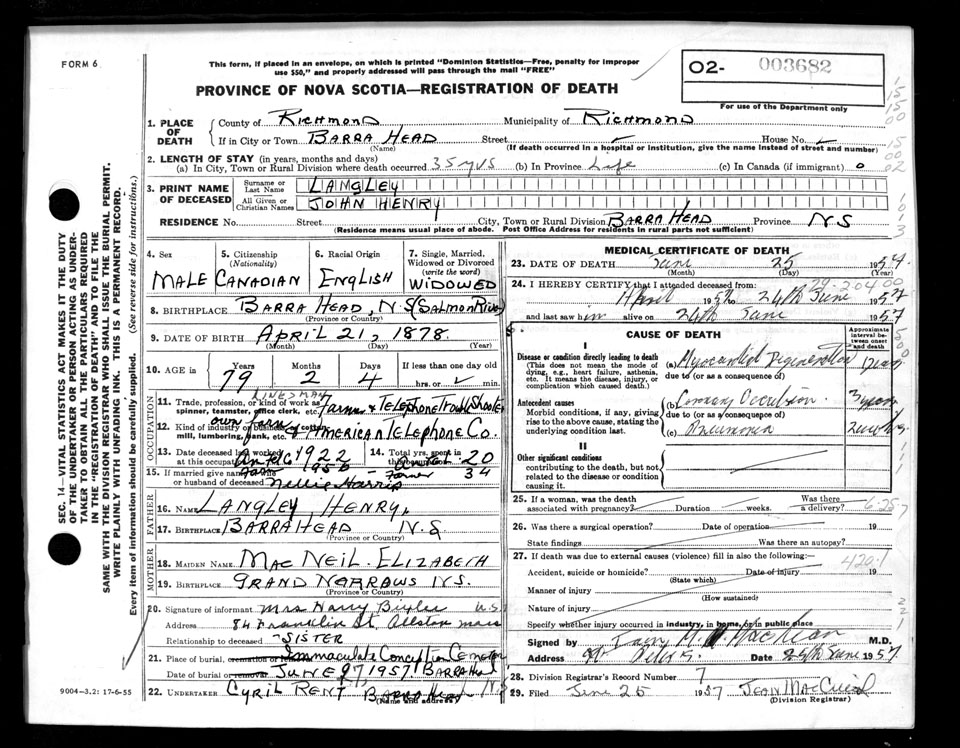 FORM 6
This form, if placed in an envelope, on which is printed "Dominion Statistics—Free, penalty for improper
use $50," and properly addressed will pass through the mail "FREE"
O2- 003682
For use of the Department only
PROVINCE OF NOVA SCOTIA—REGISTRATION OF DEATH
1. PLACE OF DEATH County of Richmond Municipality of Richmond
If in City or Town Barra Head Street House No.
(Name) (If death occurred in a hospital or institution, give the name instead of street and number)
2. LENGTH OF STAY (in years, months and days)
(a) In City, Town or Rural Division where death occurred 35 yrs (b) In Province Life (c) In Canada (if immigrant) 0
3. PRINT NAME OF DECEASED Surname or Last Name LANGLEY
All Given or Christian Names JOHN HENRY
RESIDENCE No. Street City, Town or Rural Division BARRA HEAD Province NS
(Residence means usual place of abode. Post Office Address for residents in rural parts not sufficient)
4. Sex 5. Citizenship (Nationality) 6. Racial Origin 7. Single, Married, Widowed or Divorced (write the word)
MALE CANADIAN ENGLISH WIDOWED
8. BIRTHPLACE BARRA HEAD, N.S. (Salmon River)
(Province or Country)
9. DATE OF BIRTH APRIL 21, 1878.
(Month) (Day) (Year)
10. AGE in Years Months Days If less than one day
79 2 4 hrs. or min.
OCCUPATION
11. Trade, profession, or kind of work as spinner, teamster, office clerk, etc. LINESMAN Farm & Telephone Trouble Shooter
12. Kind of industry or business, as cotton mill, lumbering, bank, etc. own farm & American Telephone Co.
13. Date deceased last worked at this occupation 1922 1956
14. Total yrs. spent in this occupation 20
Farmer 34
15. If married give name of wife or husband of deceased Nellie Harris
FATHER
16. NAME LANGLEY, HENRY,
17. BIRTHPLACE BARRA HEAD N.S.
(Province or Country)
MOTHER
18. MAIDEN NAME MacNEIL, ELIZABETH
19. BIRTHPLACE GRAND NARROWS N.S.
(Province or Country)
20. Signature of informant Mrs Harry U.S.
Address 84 Franklin St. Allston Mass
Relationship to deceased SISTER
21. Place of burial, cremation or removal Immaculate Conception Cemetery
Date of burial or removal JUNE 27, 1957 Barra Head
22. UNDERTAKER CYRIL RENT Barra Head N.S.
(Name and address)
MEDICAL CERTIFICATE OF DEATH
23. DATE OF DEATH June 25 1957
(Month) (Day) (Year)
24. I HEREBY CERTIFY that I attended deceased from:
April 1957 to 24th June 1957
and last saw him alive on 24th June 1957
CAUSE OF DEATH
Approximate interval between onset and death
I
Disease or condition directly leading to death
(This does not mean the mode of dying, e.g., heart failure, asthenia, etc. It means the disease, injury, or complication which caused death.)
(a) Myocardial Degeneration
due to (or as a consequence of)
Antecedent causes
Morbid conditions, if any, giving rise to the above cause, stating the underlying condition last.
(b) Coronary Occlusion
due to (or as a consequence of)
(c) Pneumonia
II
Other significant conditions
contributing to the death, but not related to the disease or condition causing it.
25. If a woman, was the death associated with pregnancy? Duration weeks. Was there a delivery?
6-25-7
26. Was there a surgical operation? Date of operation 19
State findings Was there an autopsy?
27. If death was due to external causes (violence) fill in also the following:—
420.1
Accident, suicide or homicide? Date of injury 19
(State which)
Manner of injury
(How sustained)
Nature of injury
Specify whether injury occurred in industry, in home, or in public place
Signed by M. MacLean M.D.
Address St. Peters. Date 25th June 1957
28. Division Registrar's Record Number 7
29. Filed June 25 1957
(Division Registrar)
SEC. 14—VITAL STATISTICS ACT MAKES IT THE DUTY
OF THE UNDERTAKER OR PERSON ACTING AS UNDER-
TAKER TO OBTAIN ALL THE PARTICULARS REQUIRED
IN THE "REGISTRATION OF DEATH" AND TO FILE THE
SAME WITH THE DIVISION REGISTRAR WHO SHALL ISSUE THE BURIAL PERMIT.
WRITE PLAINLY WITH UNFADING INK. THIS IS A PERMANENT RECORD.
Every item of information should be carefully supplied. (See reverse side for instructions.)
9004-3.2: 17-6-55